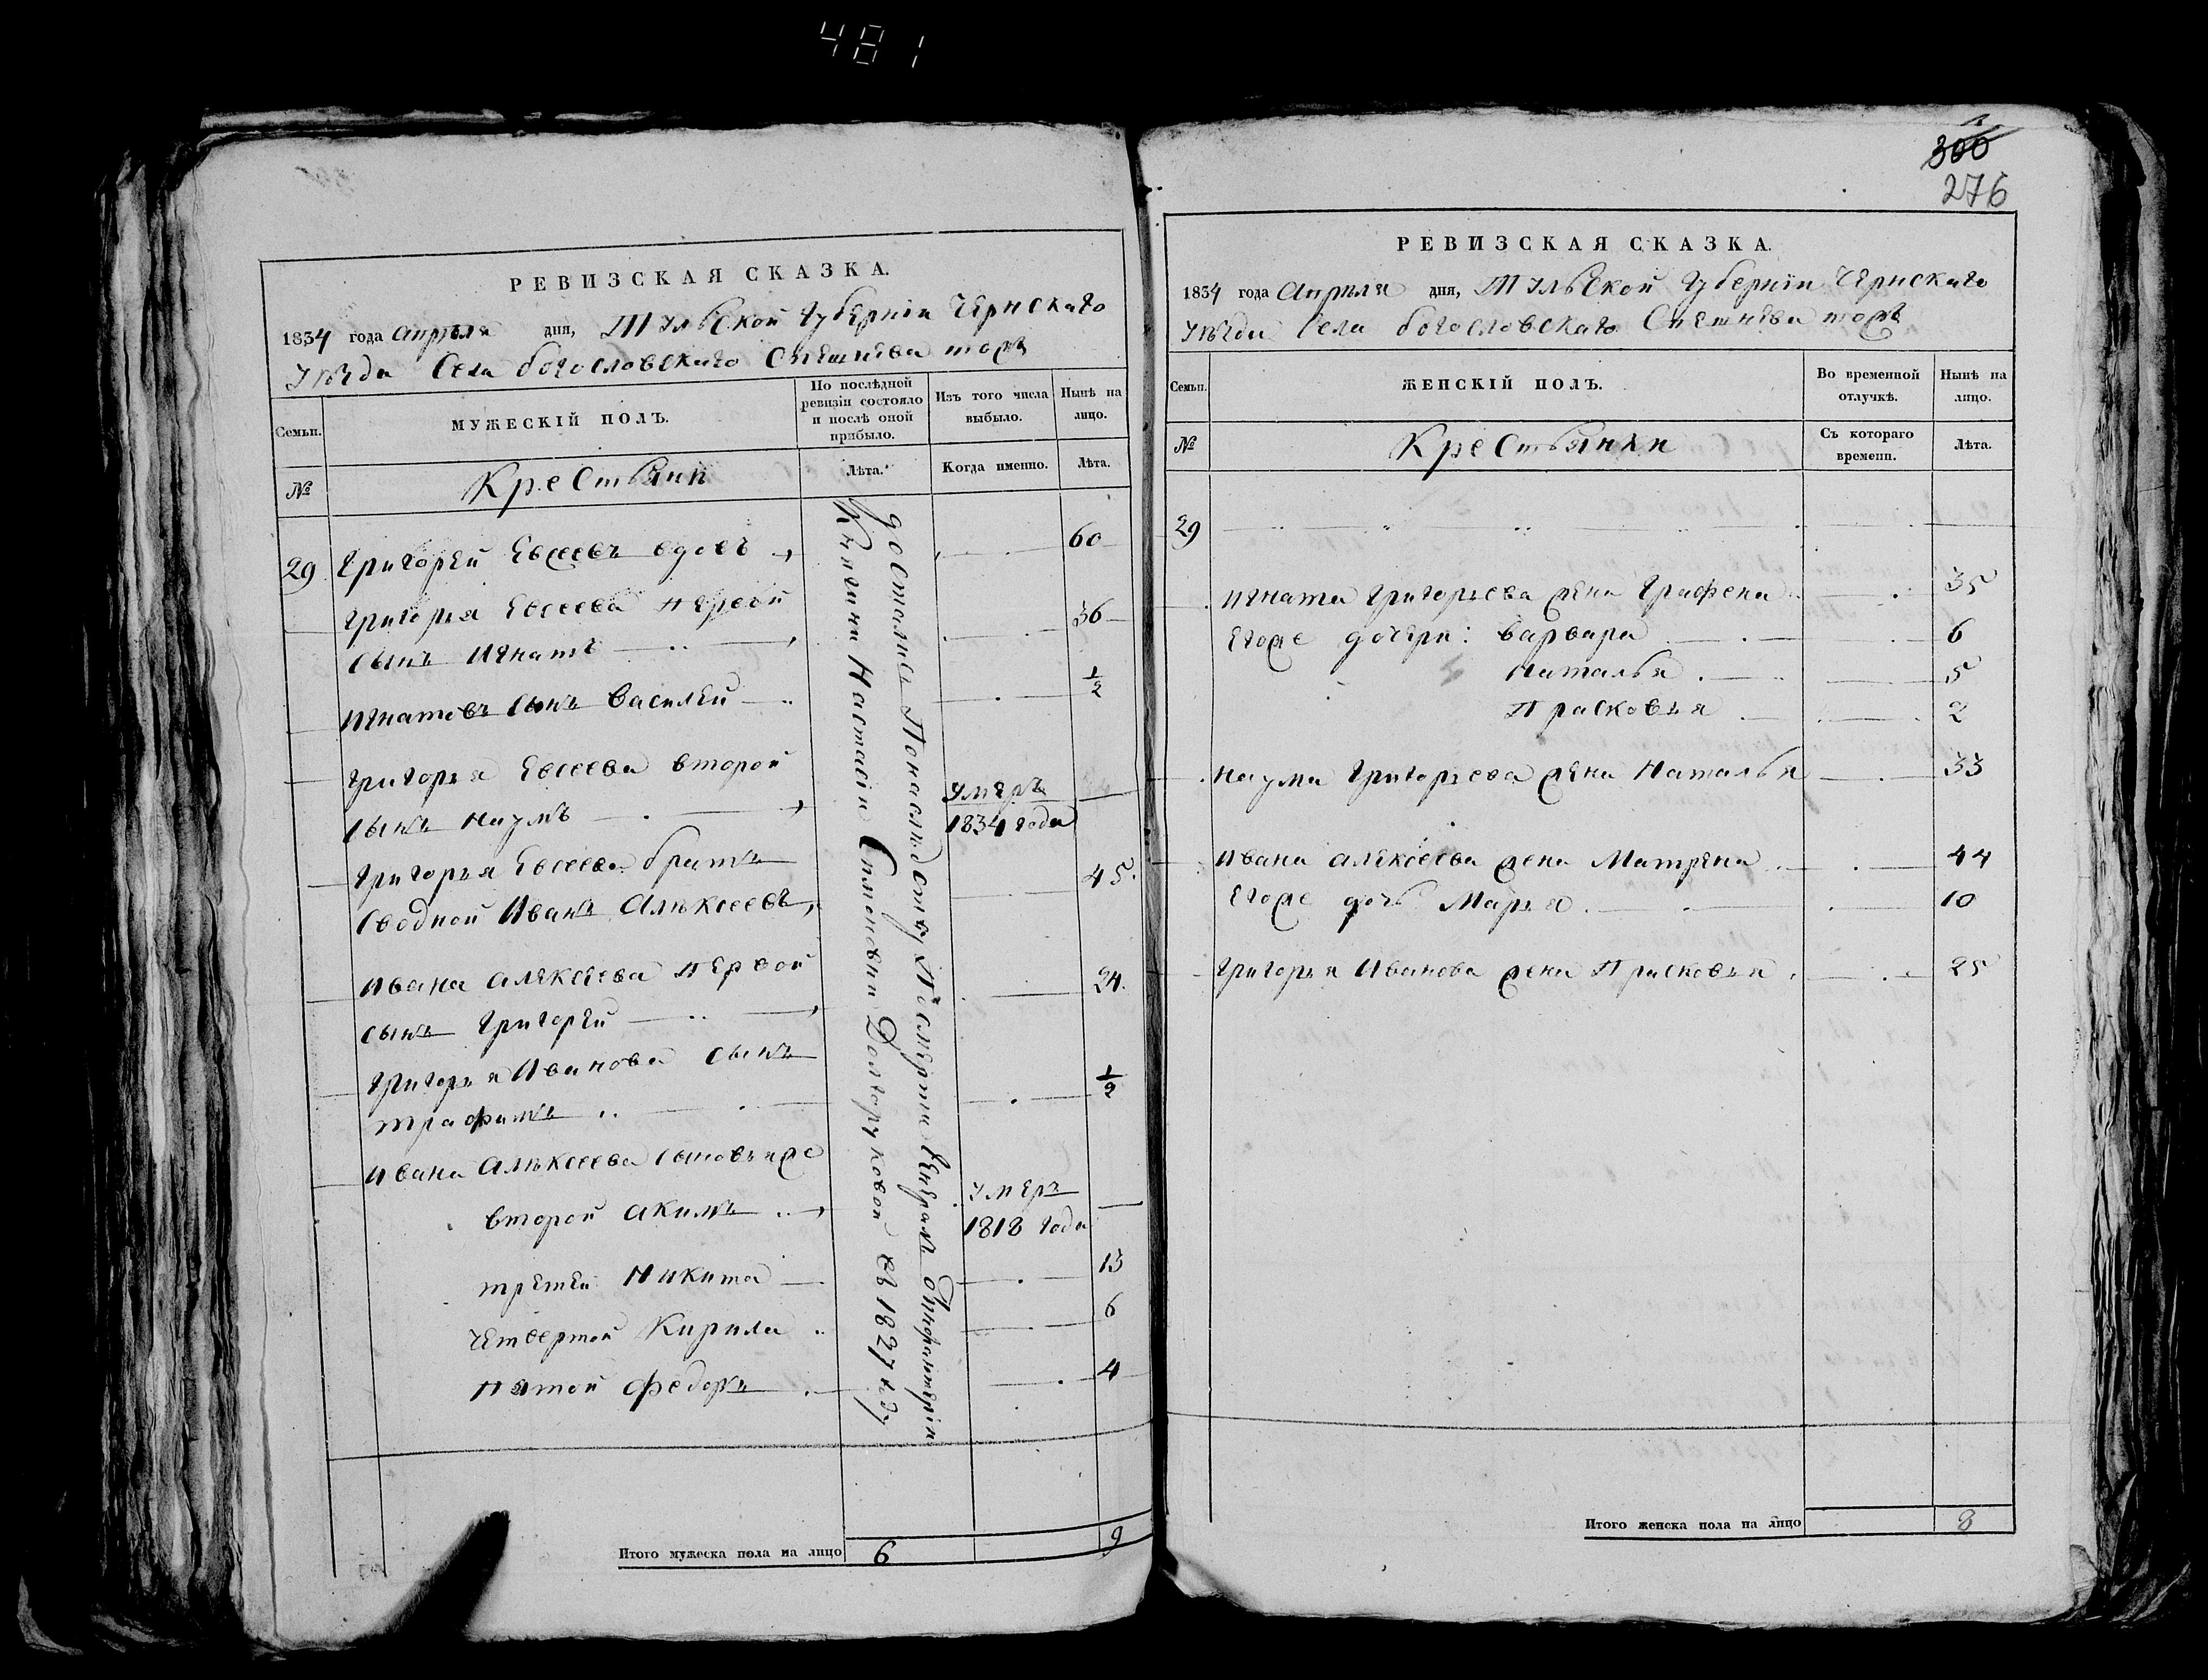 481
РЕВИЗСКАЯ СКАЗКА.
1834 года Апреля дня, Тульской Губернiи Чернскаго
Уѣзда Села богословскаго Спешнева тожъ
Семьи.
МУЖЕСКIЙ ПОЛЪ.
По послѣдней ревизiи состояло и послѣ оной прибыло.
Изъ того числа выбыло.
Нынѣ на лицо.
№
Крестьяни
Лѣта.
Когда именно.
Лѣта.
29 Григорей Евсеевъ вдовъ 60
Григорья Евсеева первой
сынъ Игнатъ 36
Игнатовъ сынъ Василей 1/2
Григорья Евсеева второй
сынъ Наумъ Умеръ 1834 года
Григорья Евсеева братъ
сводной Иванъ Алѣксеевъ 45
Ивана Алексеева первой
сынъ Григорей 24
Григорья Иванова сынъ
трафимъ 1/2
Ивана Алѣксеева сыновья же
второй Акимъ Умеръ 1818 года
третей Никита 13
Четвертой Кирила 6
пятой Федоръ 4
достались Понаследству Посмерти Генералъ Энфантерiи
Княгини Настасiи Симоновни Долгоруковой въ 1827 году
Итого мужеска пола на лицо 6 9
300
276
РЕВИЗСКАЯ СКАЗКА.
1834 года Апреля дня, Тульской Губернiи Чернскаго
Уѣзда Села богословскаго Спешнева тожъ
Семьи.
ЖЕНСКIЙ ПОЛЪ.
Во временной отлучкѣ.
Нынѣ на лицо.
№
Крестьянки
Съ котораго времени.
Лѣта.
29
Игната Григорьева жена Графена 35
Егоже дочери: Варвара 6
Наталья 5
Прасковья 2
Наума Григорьева жена Наталья 33
Ивана Алексеева жена Матрена 44
Егоже дочь Марья 10
Григорья Иванова жена Прасковья 25
Итого женска пола на лицо 8